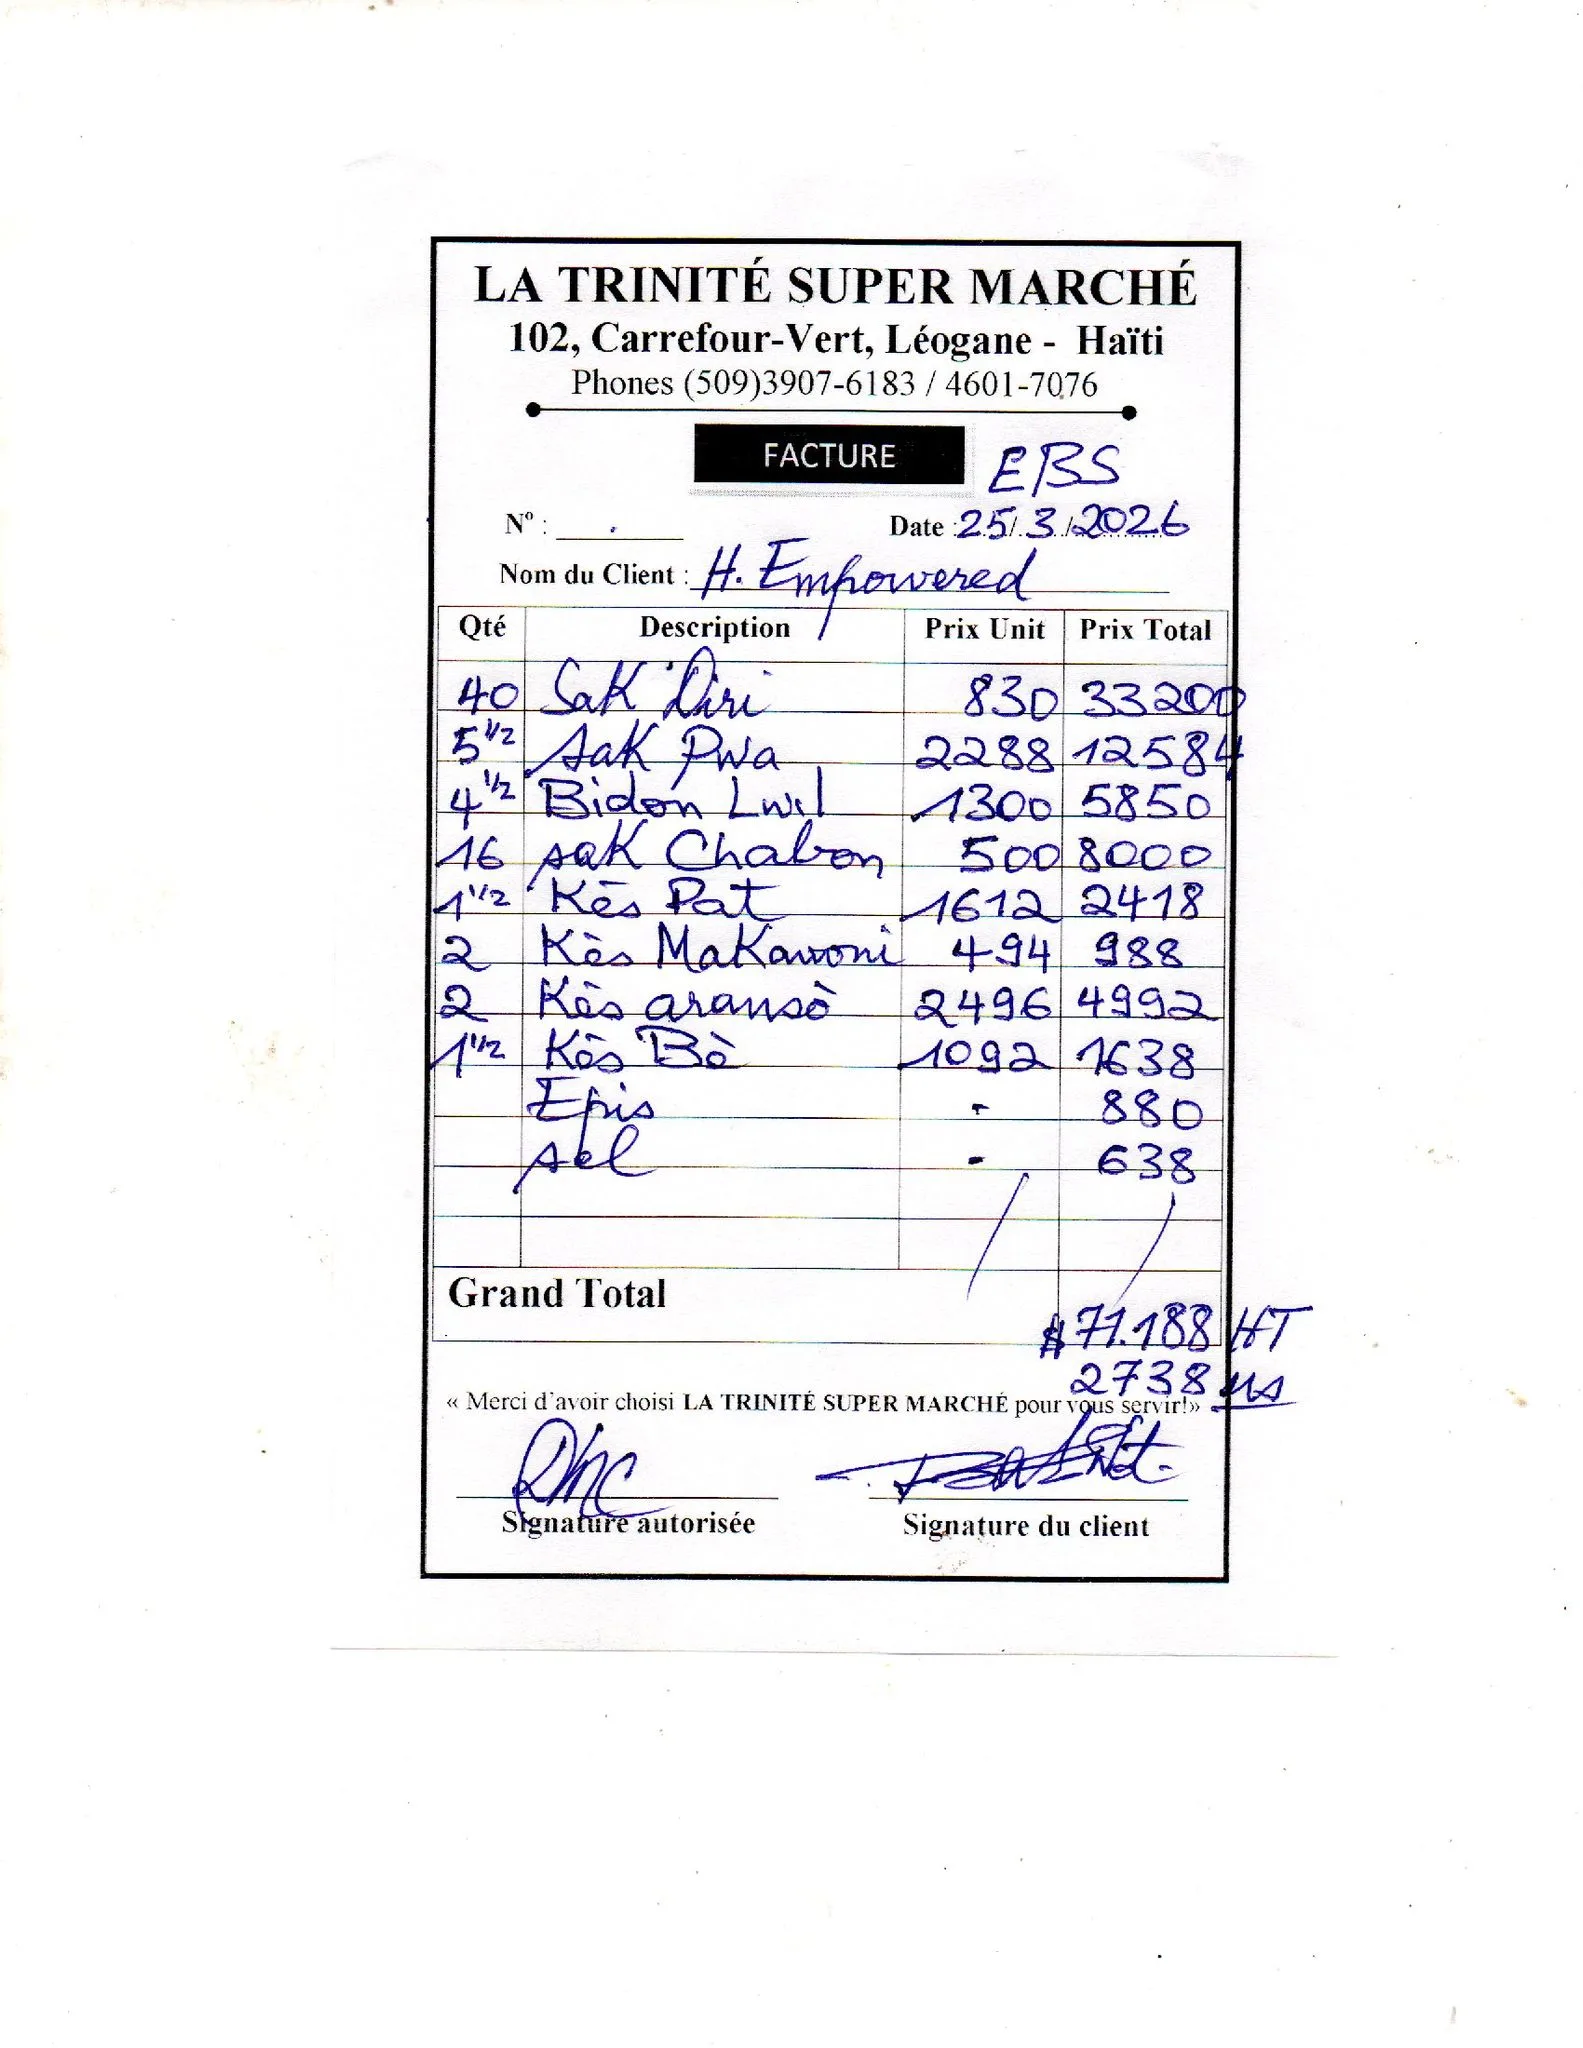 LA TRINITÉ SUPER MARCHÉ
102, Carrefour-Vert, Léogane - Haïti
Phones (509)3907-6183 / 4601-7076
FACTURE EBS
Nº : Date : 25/3/2026
Nom du Client : H. Empowered
Qté Description Prix Unit Prix Total
40 Sak Diri 830 33200
5 1/2 sak Pwa 2288 12584
4 1/2 Bidon Lwil 1300 5850
16 sak Chabon 500 8000
1 1/2 Kès Pat 1612 2418
2 Kès Makawoni 494 988
2 Kès aransò 2496 4992
1 1/2 Kès Bè 1092 1638
Epis - 880
sel - 638
Grand Total
$ 71.188 HT
2738 us
« Merci d'avoir choisi LA TRINITÉ SUPER MARCHÉ pour vous servir!»
Signature autorisée Signature du client